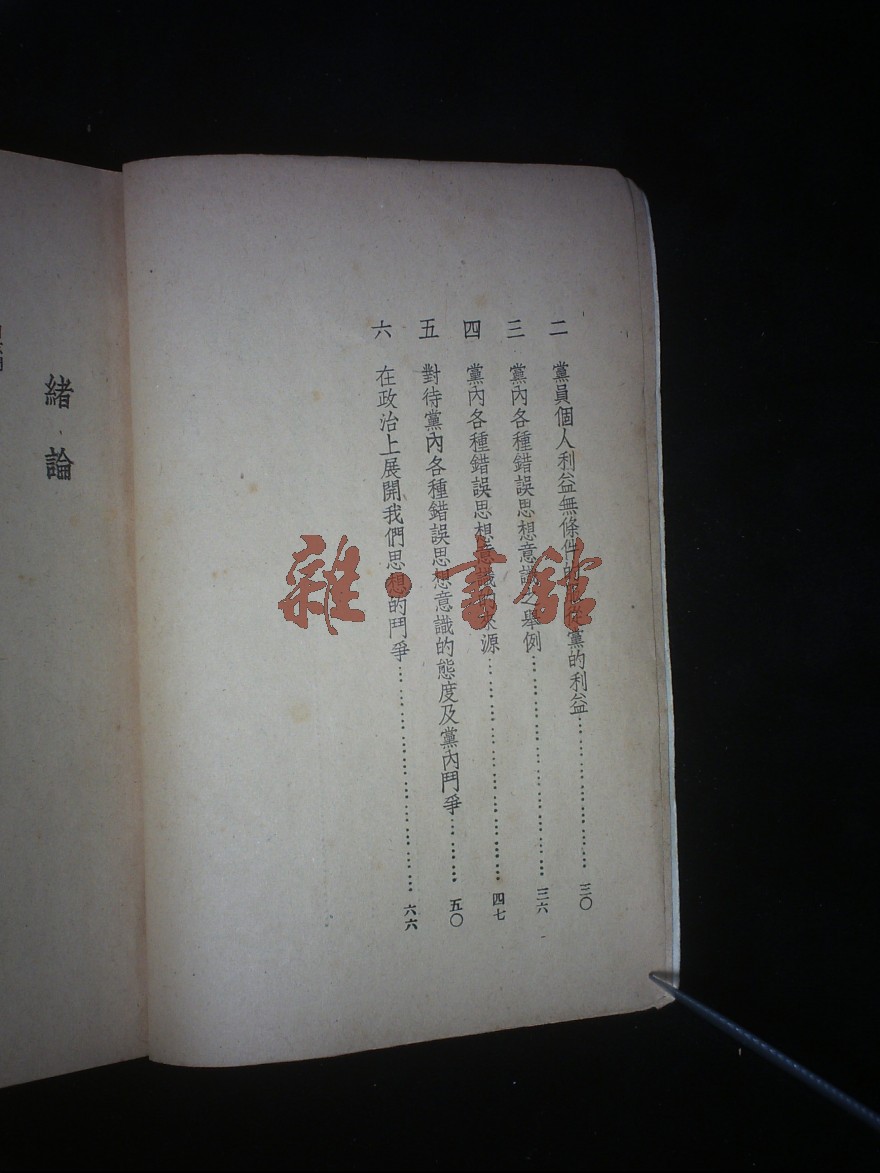 二 黨員個人利益無條件的服從黨的利益…………………三〇
三 黨內各種錯誤思想意識之舉例…………………………三六
四 黨內各種錯誤思想意識的來源…………………………四七
五 對待黨內各種錯誤思想意識的態度及黨內鬥爭………五〇
六 在政治上展開我們思想的鬥爭…………………………六六
緒、論
雜·書館